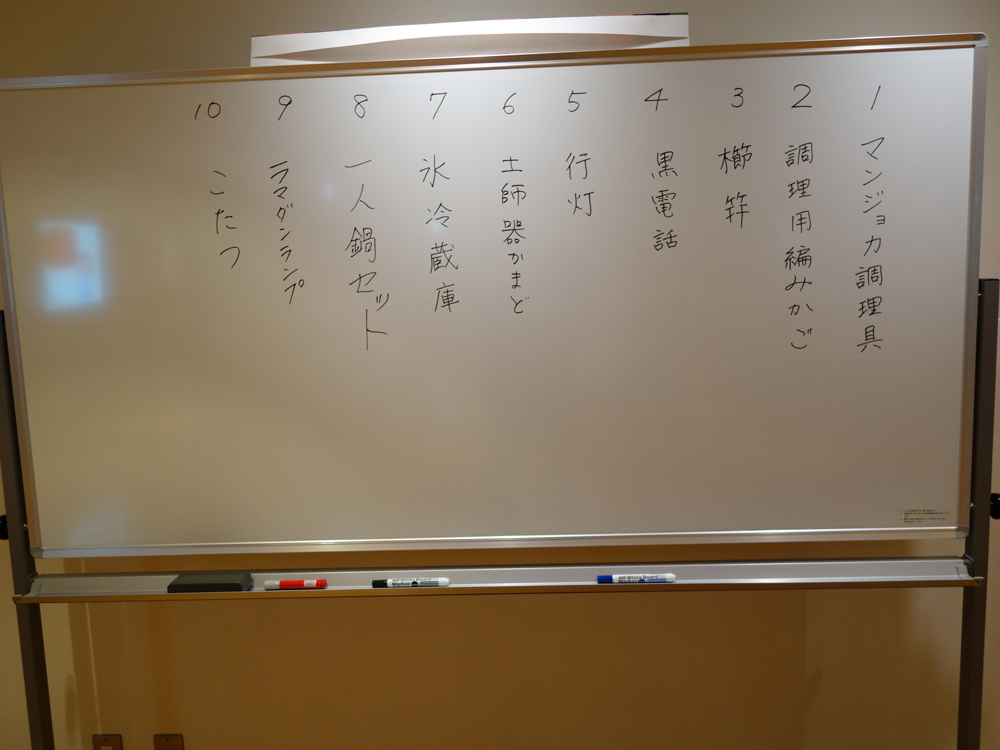 1 マンジョカ調理具
2 調理用編みかご
3 櫛笄
4 黒電話
5 行灯
6 土師器かまど
7 氷冷蔵庫
8 一人鍋セット
9 ラマダンランプ
10 こたつ
White Board
Marker
White Board
Marker